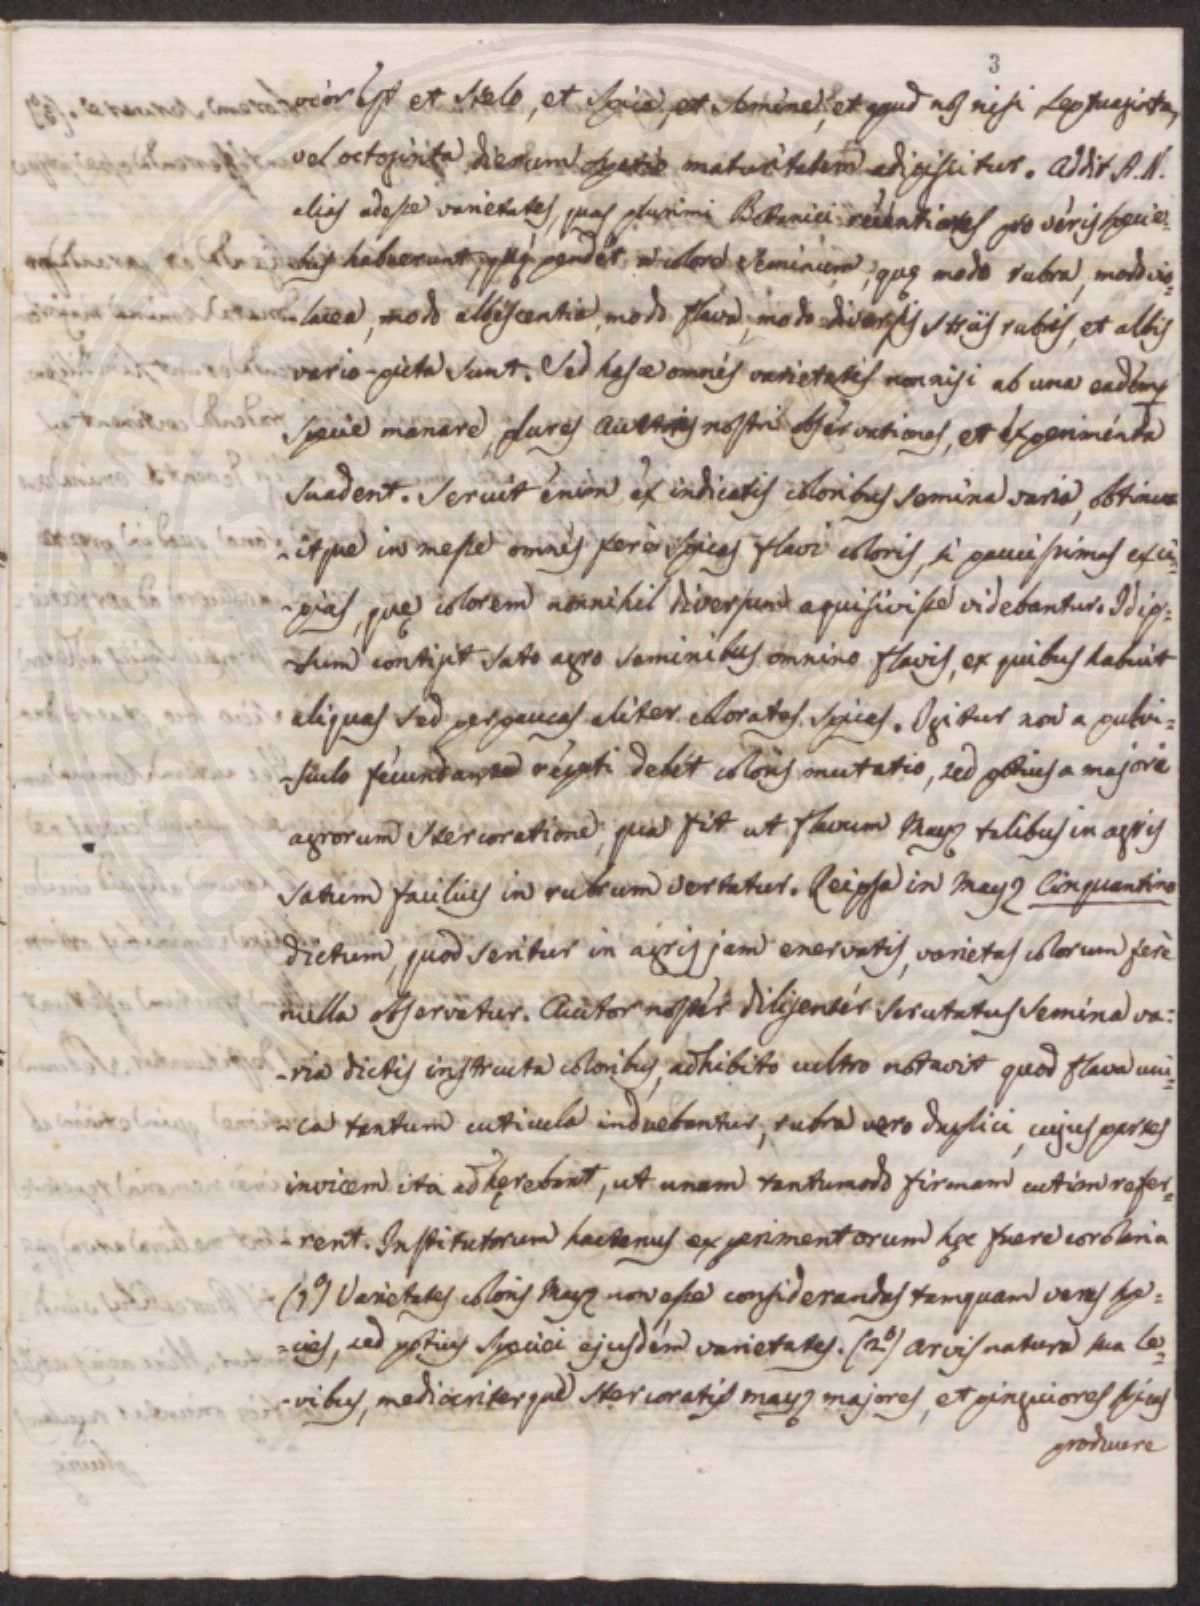 3
ocior est et stelo, et spica, et semine, et apud nos nisi septuaginta,
vel octoginta dierum spatio maturitatem adipiscitur. Addit A. N.
alias adesse varietates, quas plurimi Botanici recentiores pro veris specie=
bus habuerunt, pendet a colore seminum, quę modo rubra, modo vio=
-lacea, modo albescentia, modo flava, modo diversis striis rubris, et albis
vario-picta sunt. Sed hasce omnes varietates nonnisi ab una eadémq
specie manare, plures Auctoris nostri observationes, et experimenta
suadent. Seruit enim ex indicatis coloribus semina varia, obtinu
-itque in messe omnes ferè spicas flavi coloris, si paucissimas exci=
-pias, quę colorem nonnihil diversum aquisivisse videbantur. Idip=
-sum contigit sato agro seminibus omnino flavis, ex quibus habuit
aliquas sed perpaucas aliter coloratas spicas. Igitur non a pulvi=
-sculo fecundante repeti debet coloris mutatio, sed potius a majore
agrorum stercoratione, qua fit ut flavum Mayz talibus in agris
satum facilius in rubrum vertatur. Reipsa in Mayz Cinquantino
dictum, quod seritur in agris jam enervatis, varietas colorum ferè
nulla observatur. Auctor noster diligenter scrutatus semina va=
-ria dictis instructa coloribus, adhibito cultro notavit quod flava uni=
-ca tantum cuticula induebantur, rubra vero duplici, cujus partes
invicem ita adhęrebant, ut unam tantumodo firmam cutim refer=
-rent. Institutorum hactenus experimentorum hęc fuere corolaria
(1º) Varietates coloris Mayz non esse considerandas tamquam veras spe=
=cies, sed potius speciei ejusdem varietates. (2º) Arvis natura sua le=
-vibus, mediocriterque stercoratis mayz majores, et pinguiores spicas
producere